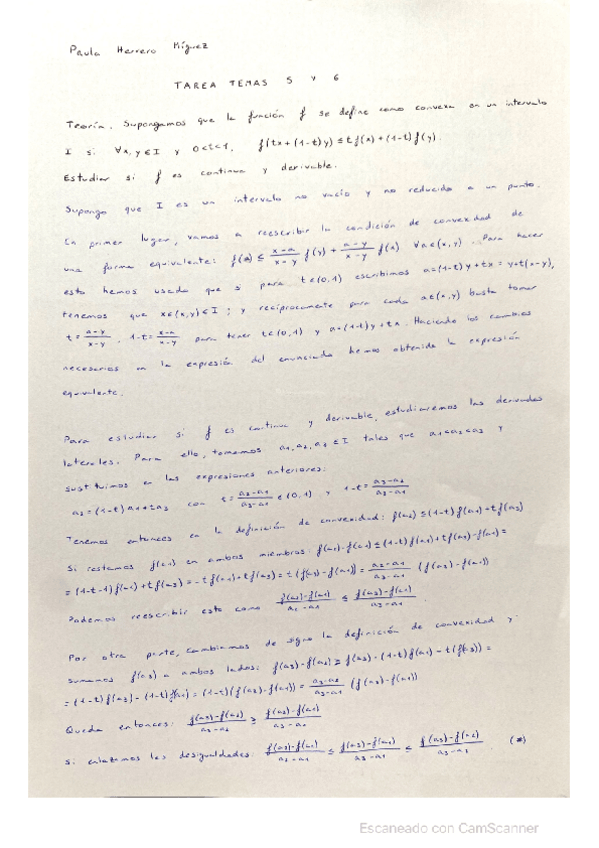 Paula Herrero Míguez
TAREA TEMAS 5 Y 6
Teoría. Supongamos que la función f se define como convexa en un intervalo
I si ∀x,y ∈ I y 0<t<1, f(tx+(1-t)y) ≤ t f(x)+(1-t)f(y).
Estudiar si f es continua y derivable.
Supongo que I es un intervalo no vacío y no reducido a un punto.
En primer lugar, vamos a reescribir la condición de convexidad de
una forma equivalente: f(a) ≤ x-a/x-y f(y) + a-y/x-y f(x) ∀a∈(x,y). Para hacer
esto hemos usado que si para t∈(0,1) escribimos a=(1-t)y+tx = y+t(x-y),
tenemos que ∈(x,y)⊂I; y recíprocamente para cada a∈(x,y) basta tomar
t= a-y/x-y, 1-t= x-a/x-y para tener t∈(0,1) y a=(1-t)y+tx. Haciendo los cambios
necesarios en la expresión del enunciado hemos obtenido la expresión
equivalente.
Para estudiar si f es continua y derivable, estudiaremos las derivadas
laterales. Para ello, tomamos a1,a2,a3 ∈ I tales que a1<a2<a3 y
sustituimos en las expresiones anteriores:
a2=(1-t)a1+ta3 con t= a2-a1/a3-a1 ∈(0,1) y 1-t= a3-a2/a3-a1
Tenemos entonces en la definición de convexidad: f(a2) ≤ (1-t)f(a1)+tf(a3)
Si restamos f(a1) en ambos miembros: f(a2)-f(a1) ≤ (1-t)f(a1)+tf(a3)-f(a1) =
= (1-t-1)f(a1)+tf(a3) = -tf(a1)+tf(a3) = t(f(a3)-f(a1)) = a2-a1/a3-a1 (f(a3)-f(a1))
Podemos reescribir esto como f(a2)-f(a1)/a2-a1 ≤ f(a3)-f(a1)/a3-a1.
Por otra parte, cambiamos de signo la definición de convexidad y
sumamos f(a3) a ambos lados: f(a3)-f(a2) ≥ f(a3)-(1-t)f(a1)-t(f(a3)) =
= (1-t)f(a3)-(1-t)f(a1) = (1-t)(f(a3)-f(a1)) = a3-a2/a3-a1 (f(a3)-f(a1))
Queda entonces: f(a3)-f(a2)/a3-a2 ≥ f(a3)-f(a1)/a3-a1
Si enlazamos las desigualdades: f(a2)-f(a1)/a2-a1 ≤ f(a3)-f(a1)/a3-a1 ≤ f(a3)-f(a2)/a3-a2. (*)
Escaneado con CamScanner